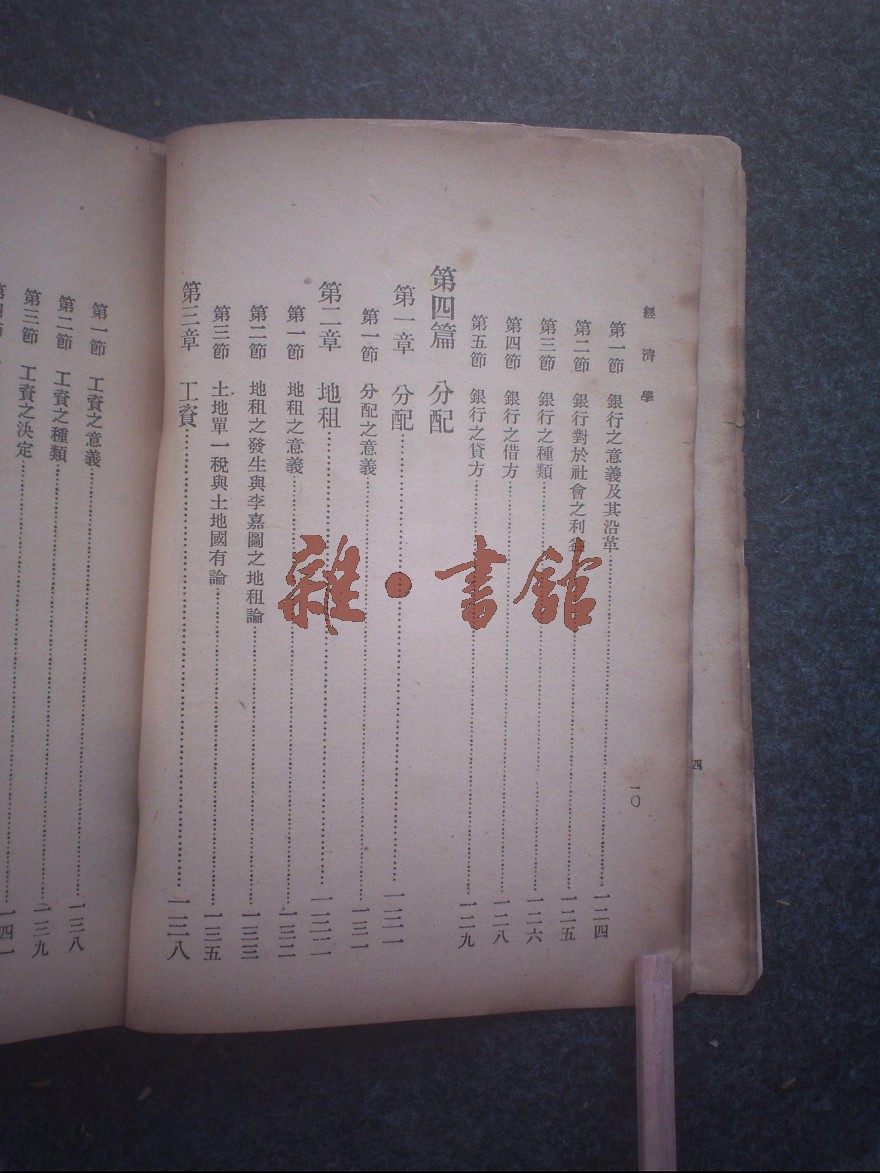 經濟學
一〇
第一節 銀行之意義及其沿革……一二四
第二節 銀行對於社會之利益……一二五
第三節 銀行之種類……一二六
第四節 銀行之借方……一二八
第五節 銀行之貸方……一二九
第四篇 分配
第一章 分配……一三一
第一節 分配之意義……一三一
第二章 地租……一三二
第一節 地租之意義……一三二
第二節 地租之發生與李嘉圖之地租論……一三三
第三節 土地單一稅與土地國有論……一三五
第三章 工資……一三八
第一節 工資之意義……一三八
第二節 工資之種類……一三九
第三節 工資之決定……一四一
四
雜·書館